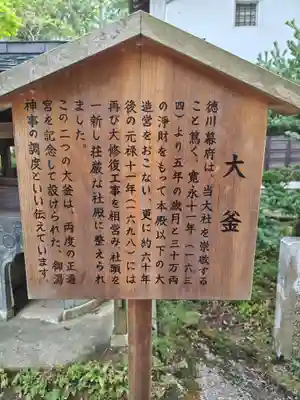 大釜
徳川幕府は、当大社を崇敬する
こと篤く、寛永十一年(一六三
四)より五年の歳月と三十万両
の浄財をもって本殿以下の大
造営をおこない、更に約六十年
後の元禄十一年(一六九八)には
再び大修復工事を相営み、社頭を
一新し荘厳な社殿に整えられ
ました。
この二つの大釜は、両度の正遷
宮を記念して設けられた、御湯
神事の調度といい伝えています。